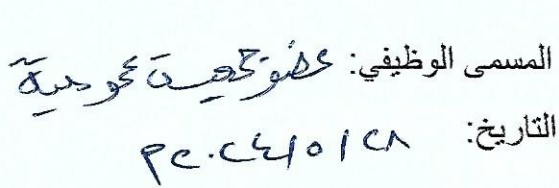 المسمى الوظيفي: عضو جمعية عمومية
التاريخ: ٢٨/٥/٢٠٢٤م